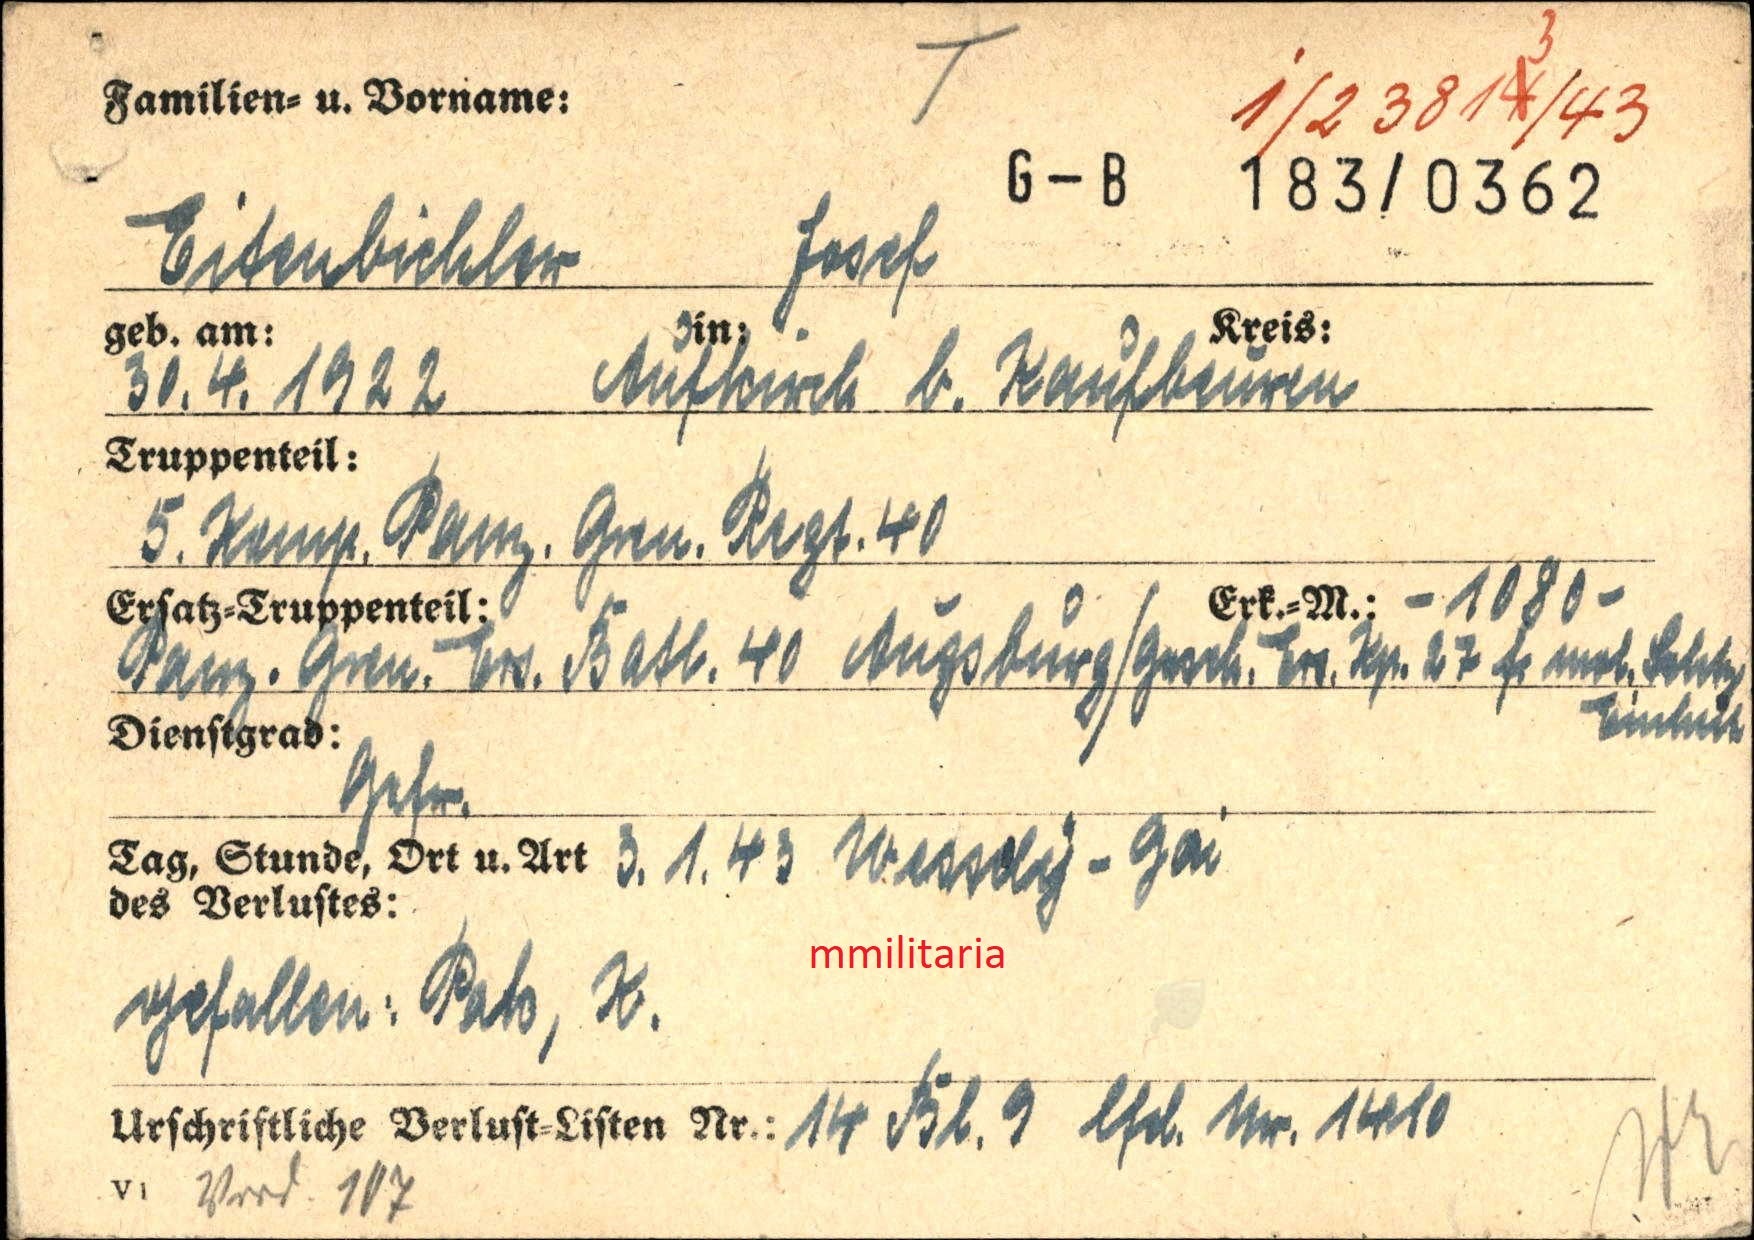 3
1/2 3814/43
Familien- u. Vorname:
G-B 183/0362
Eitenbichler Josef
geb. am: in: Kreis:
30.4.1922 Aufkirch b. Kaufbeuren
Truppenteil:
5. Komp. Panz. Gren. Regt. 40
Ersatz-Truppenteil: Erk.-M.: -1080-
Panz. Gren. Ers. Batl. 40 Augsburg/Gesch. Ers. Kp. 27 f.
Einheit
Dienstgrad:
Gefr.
Tag, Stunde, Ort u. Art 3.1.43 Wesselij-Gai
des Verlustes:
mmilitaria
gefallen: Pak, K.
Urschriftliche Verlust-Listen Nr.: 14 Bl. 9 lfd. Nr. 1410
V1 107